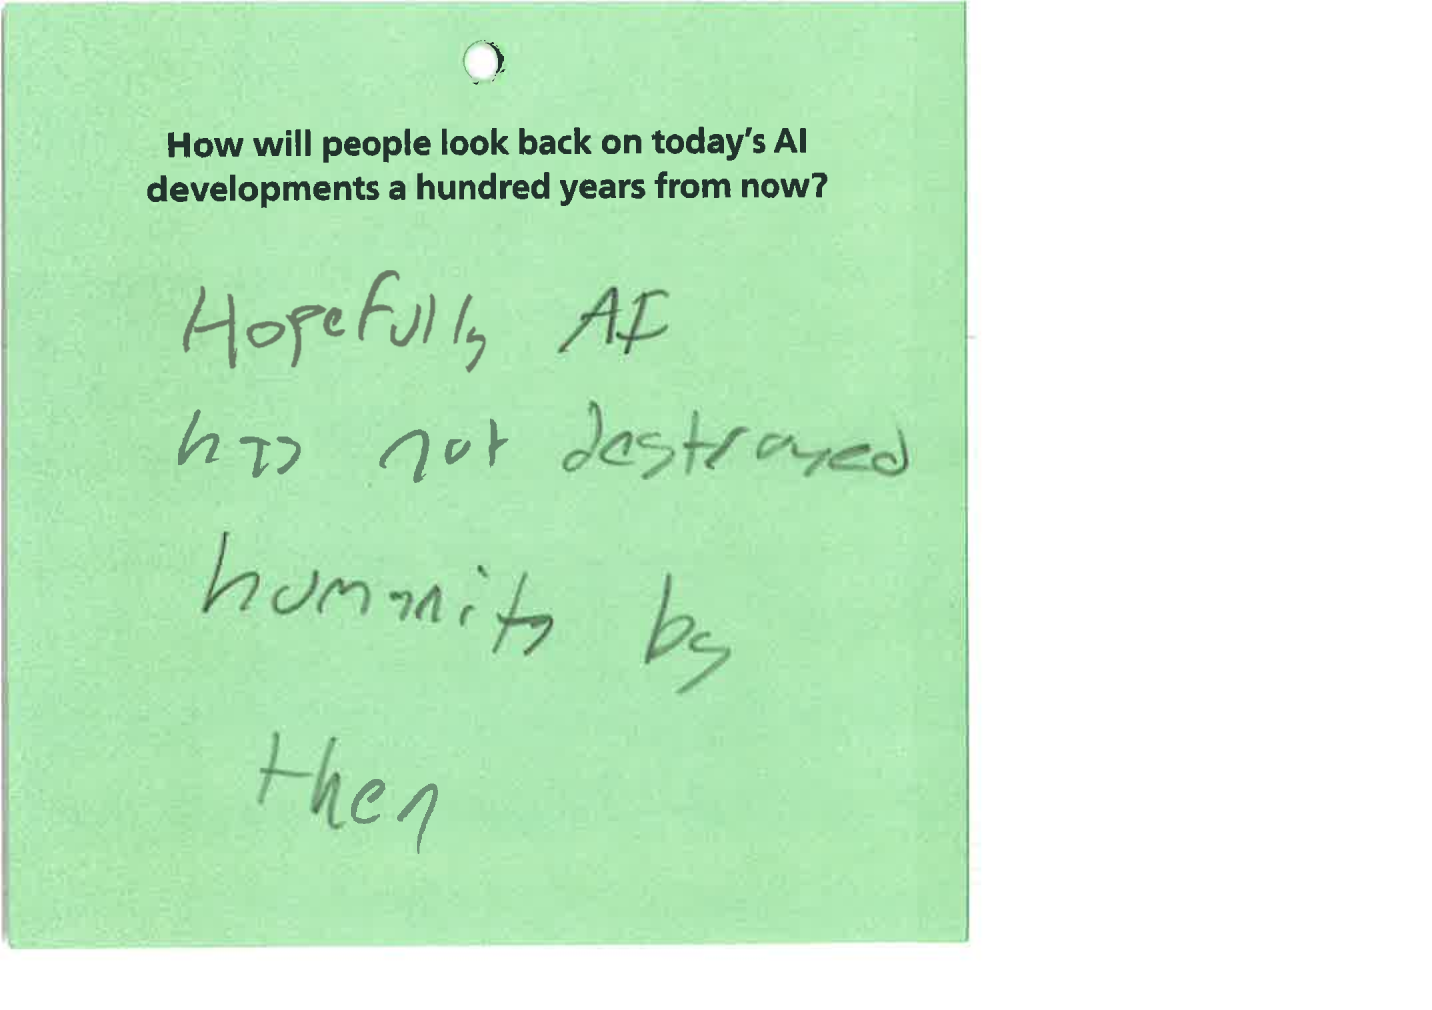 How will people look back on today's AI
developments a hundred years from now?
Hopefully AI
has not destroyed
humanity by
then